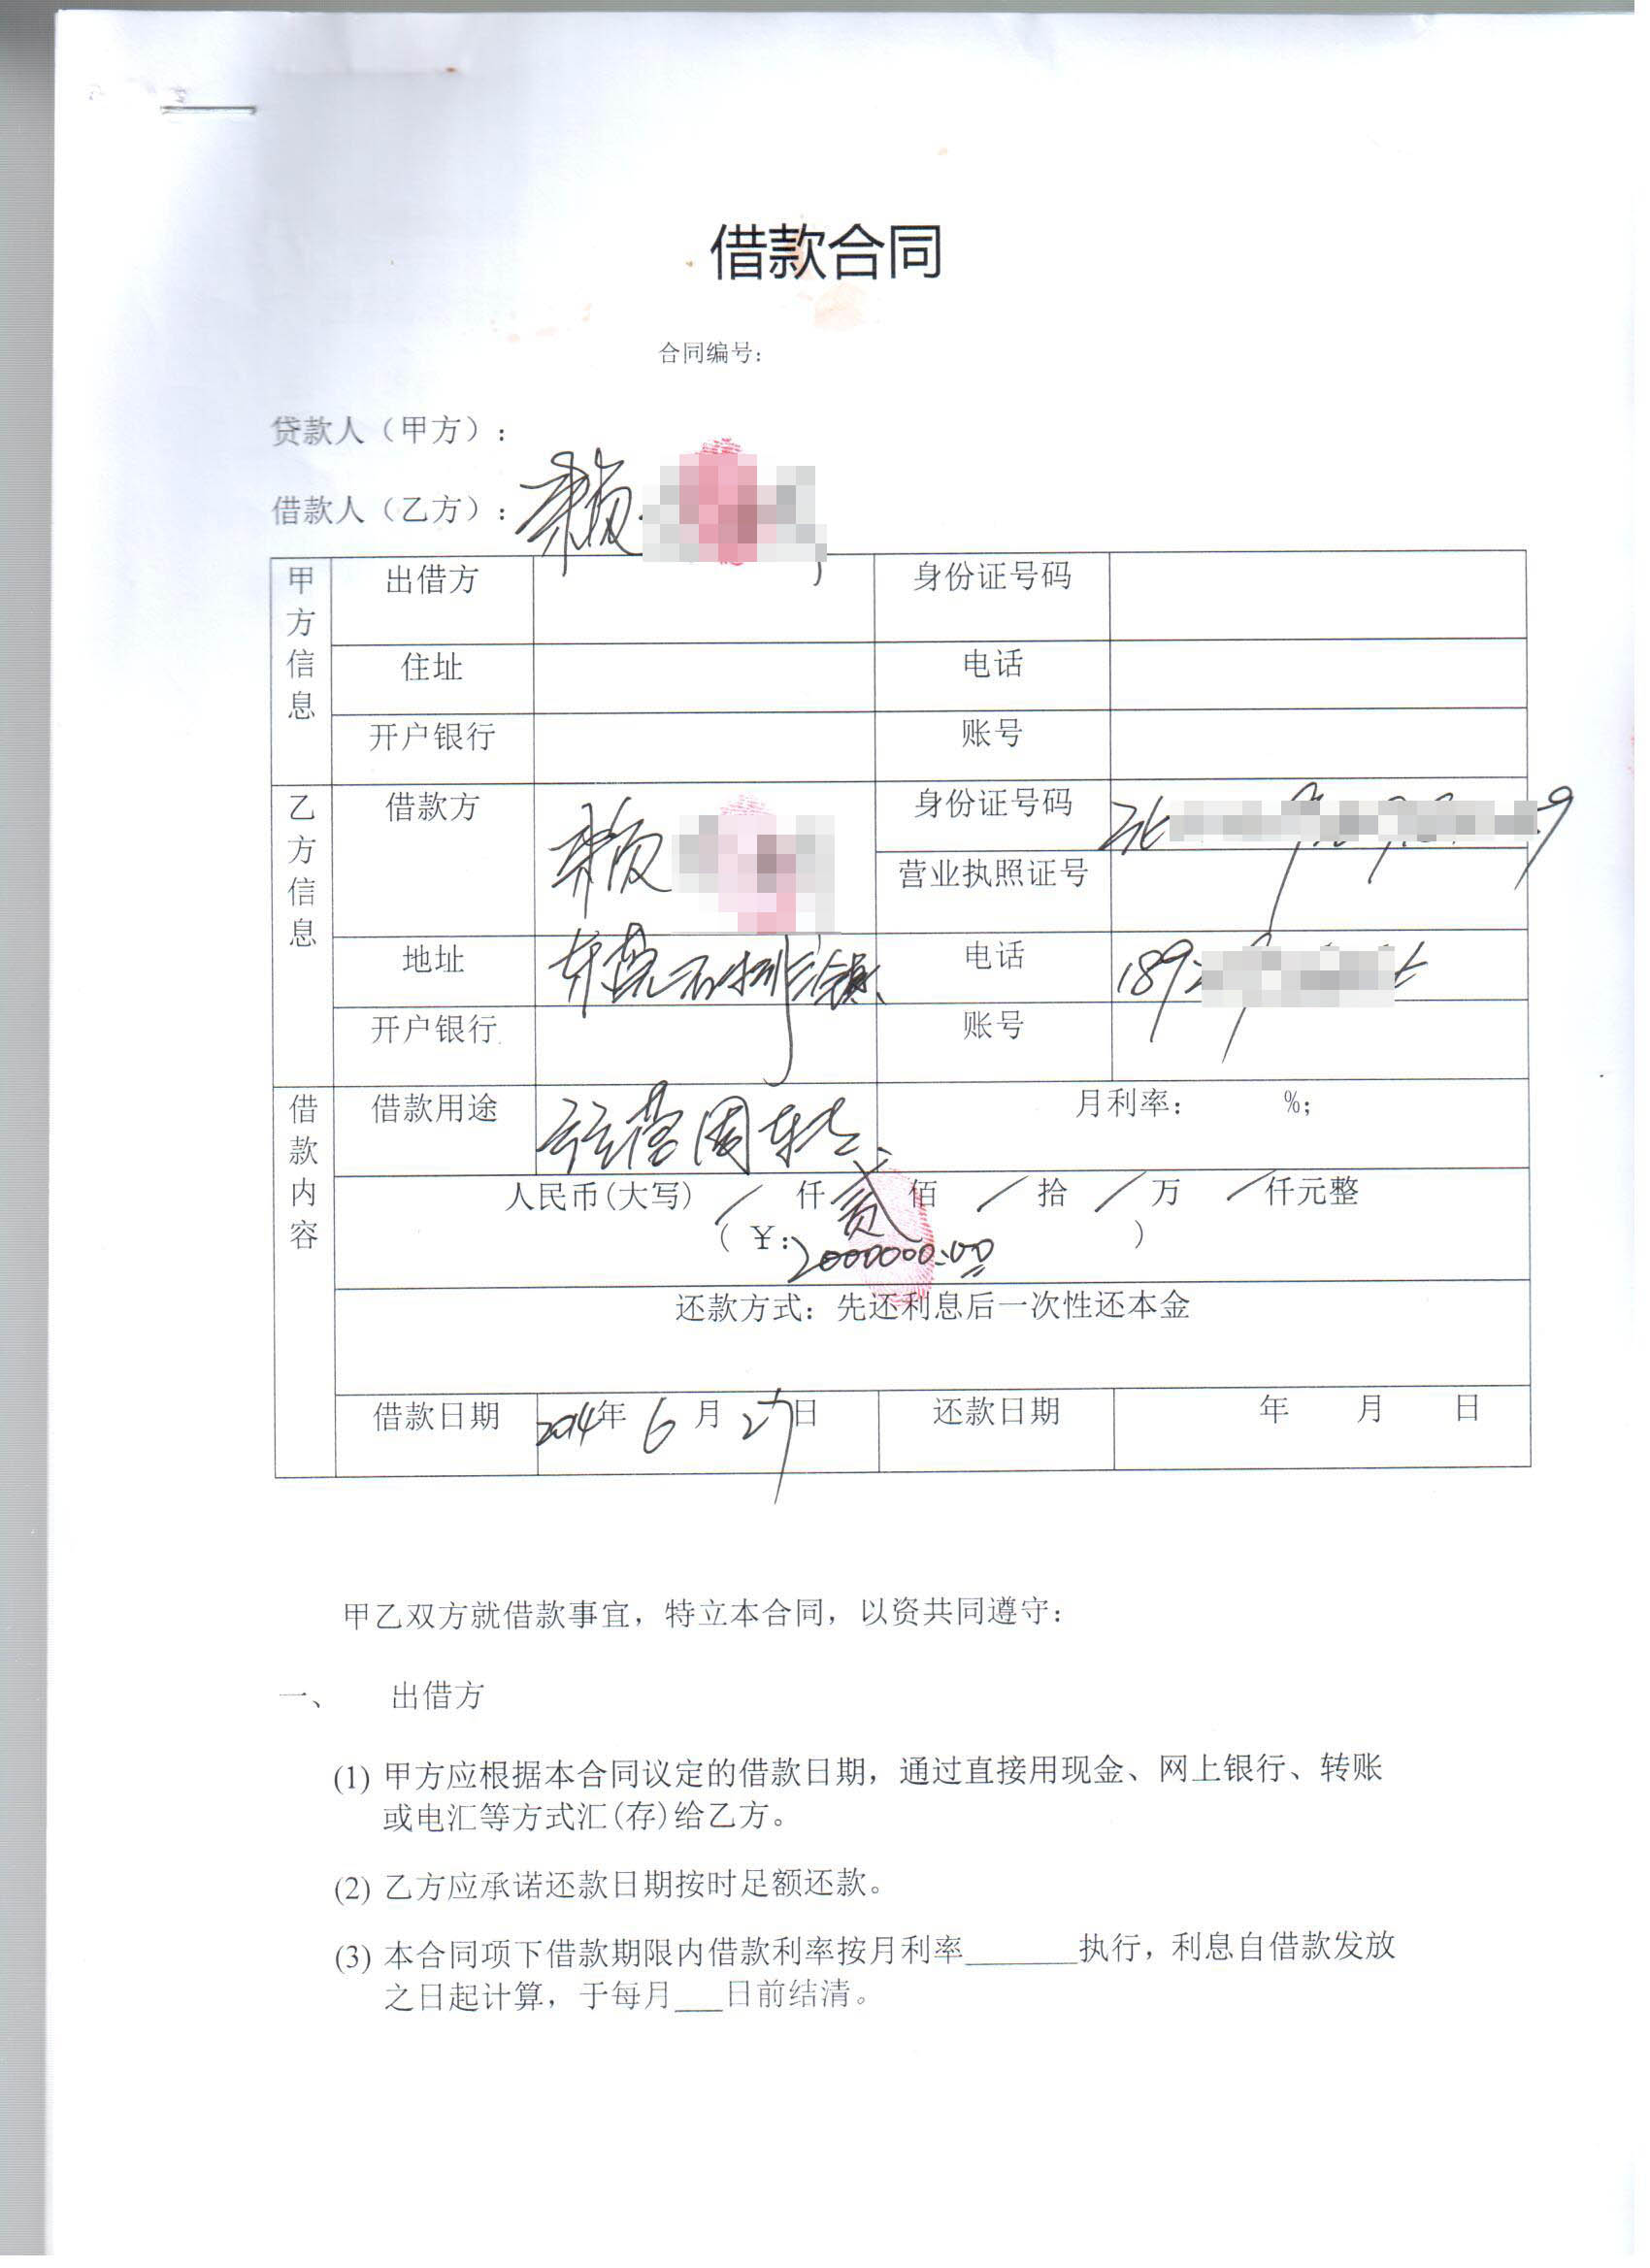 借款合同
合同编号：
贷款人（甲方）：
借款人（乙方）：赖
甲方信息
出借方
身份证号码
住址
电话
开户银行
账号
乙方信息
借款方
赖
身份证号码
9
营业执照证号
地址
东莞石排镇
电话
189
开户银行
账号
借款内容
借款用途
经营周转
月利率： %；
人民币(大写) / 仟 贰 佰 / 拾 / 万 / 仟元整
（ ￥：2000000.00 ）
还款方式：先还利息后一次性还本金
借款日期
2014年 6 月 27日
还款日期
年 月 日
甲乙双方就借款事宜，特立本合同，以资共同遵守：
一、 出借方
(1) 甲方应根据本合同议定的借款日期，通过直接用现金、网上银行、转账
或电汇等方式汇(存)给乙方。
(2) 乙方应承诺还款日期按时足额还款。
(3) 本合同项下借款期限内借款利率按月利率_______执行，利息自借款发放
之日起计算，于每月___日前结清。